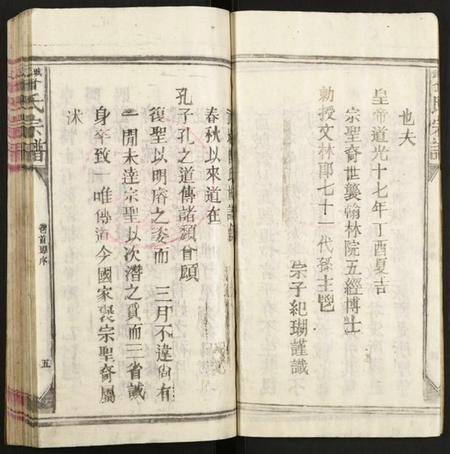 也夫
皇帝道光十七年丁酉夏吉
宗聖裔世襲翰林院五經博士
勅授文林郎七十一代孫主鬯
宗子紀瑚謹識
春秋以來道在
孔子孔之道傳諸顏曾顧
復聖以明睿之姿而三月不違尚有
一間未達宗聖以次潛之質而三省誠
身卒致一唯傳道今國家褒宗聖裔屬
沭
氏宗譜
卷首 序
五